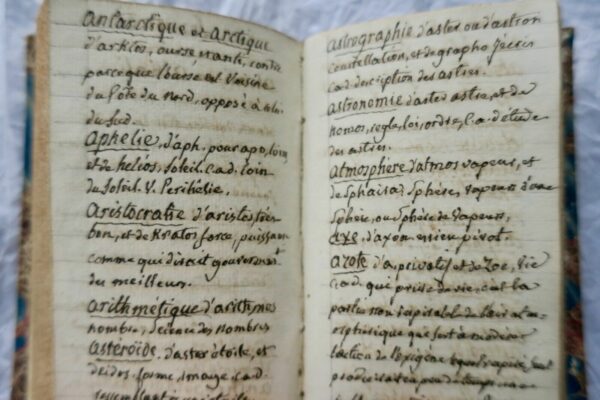 antarctique et arctique
d'arktos, ourse, et anti, contre
parceque l'ourse est voisine
du Pôle du Nord, opposé à celui
du Sud.
aphelie, d'aph. pour apo, loin
et de helios, Soleil. C.a.d. loin
du Soleil. V. Perihélie.
aristocratie d'aristos, très
bon, et de Kratos force, puissance
comme qui diroit gouvernement
du meilleur.
arithmétique d'arithmos
nombre, science des nombres
asteroïde, d'aster étoile, et
d'eidos, forme, image, C.a.d.
ressemblant à
astrographie d'aster ou d'astron
constellation, et de grapho j'écris
C.a.d. description des astres.
astronomie d'aster astre, et de
nomos, regle, loi, ordre, C.a.d. étude
des astres.
atmosphère d'atmos vapeur, et
de Sphaira Sphère, vapeurs
Sphère, ou Sphère de Vapeurs,
axe, d'axon essieu pivot.
azote d'a, privatif, et de Zoe, Vie
C.a.d. qui prive de vie, c'est la
partie non respirable de l'air atmo-
sphérique qui sert à modérer
l'action de l'oxigène